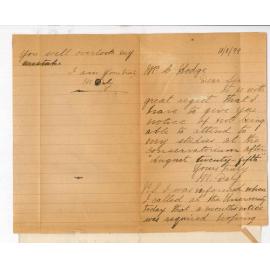 11/8/99
Mr C Hodge
Dear Sir
It is with
great regret that I
have to give you
notice of not being
able to attend to
my studies at the
conservatorium after
August twenty-fifth
Yours truly
M. Daly
P.S. I was informed when
I called at the University
today that a months notice
was required hoping
you will overlook my
mistake
I am yours truly
M. D.